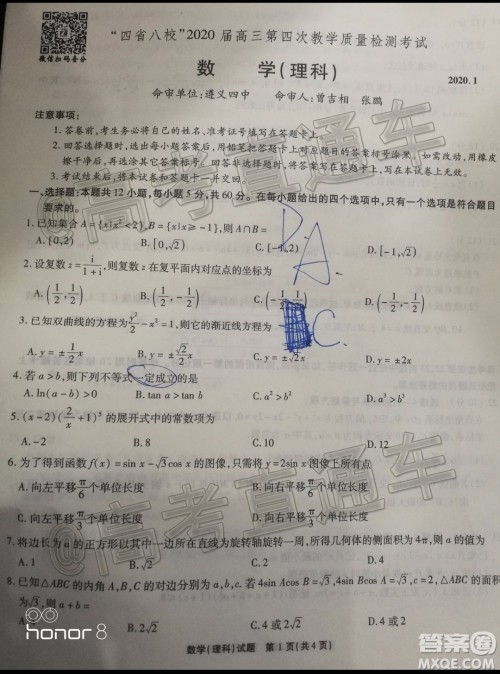 微信扫码查分
"四省八校"2020届高三第四次教学质量检测考试
数 学(理科)
2020.1
命审单位:遵义四中 命审人:曾吉相 张鹏
注意事项:
1. 答卷前,考生务必将自己的姓名、准考证号填写在答题卡上.
2. 回答选择题时,选出每小题答案后,用铅笔把答题卡上对应题目的答案标号涂黑。如需改动,用橡皮
擦干净后,再选涂其它答案标号。回答非选择题时,将答案写在答题卡上,写在本试卷上无效。
3. 考试结束后,将本试卷和答题卡一并交回。
一、选择题:本题共12小题,每小题5分,共60分。在每小题给出的四个选项中,只有一个选项是符合题目
要求的。
1. 已知集合A={x|x²<2},B={x|x≥-1},则A∩B=
A. [0,2) B. [0,√2) C. [-1,2) D. [-1,√2)
D.
A.
2. 设复数z=i/(1+i),则复数z在复平面内对应点的坐标为
A. (1/2,1/2) B. (1/2,-1/2) C. (-1/2, D. (-1/2,
3. 已知双曲线的方程为y²/2-x²=1,则它的渐近线方程为
C.
A. y=±1/2x B. y=±√2/2x C. y=±√2x D. y=±2x
4. 若a>b,则下列不等式一定成立的是
A. ln(a-b)>0 B. tan a>tan b C. a²>b² D. a³>b³
5. (x-2)(2/x+1)⁵的展开式中的常数项为
A. -2 B. 8 C. 10 D. 12
6. 为了得到函数f(x)=sin x-√3cos x的图像,只需将y=2sin x图像上所有点
A. 向左平移π/6个单位长度 B. 向右平移π/6个单位长度
C. 向左平移π/3个单位长度 D. 向右平移π/3个单位长度
7. 将边长为a的正方形以其中一边所在直线为旋转轴旋转一周,所得几何体的侧面积为4π,则a的值为
A. 1 B. √2 C. 2 D. 2√2
8. 已知△ABC的内角A,B,C的对边分别为a,b,c.若4sin Acos B=√3,4cos Asin B=√3,c=2,△ABC的面积
为√3,则a=
B. 2√2 C. 4或2 D. 4或2√2
honor 8
数学(理科)试题 第1页(共4页)
@高考直通车
@高考直通车
答案圈
MXQE.COM